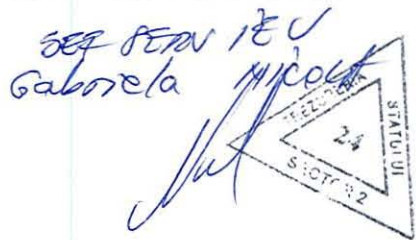 SEF SERV
Gabriela
TREZORERIA
STATULUI
SECTOR 2
24